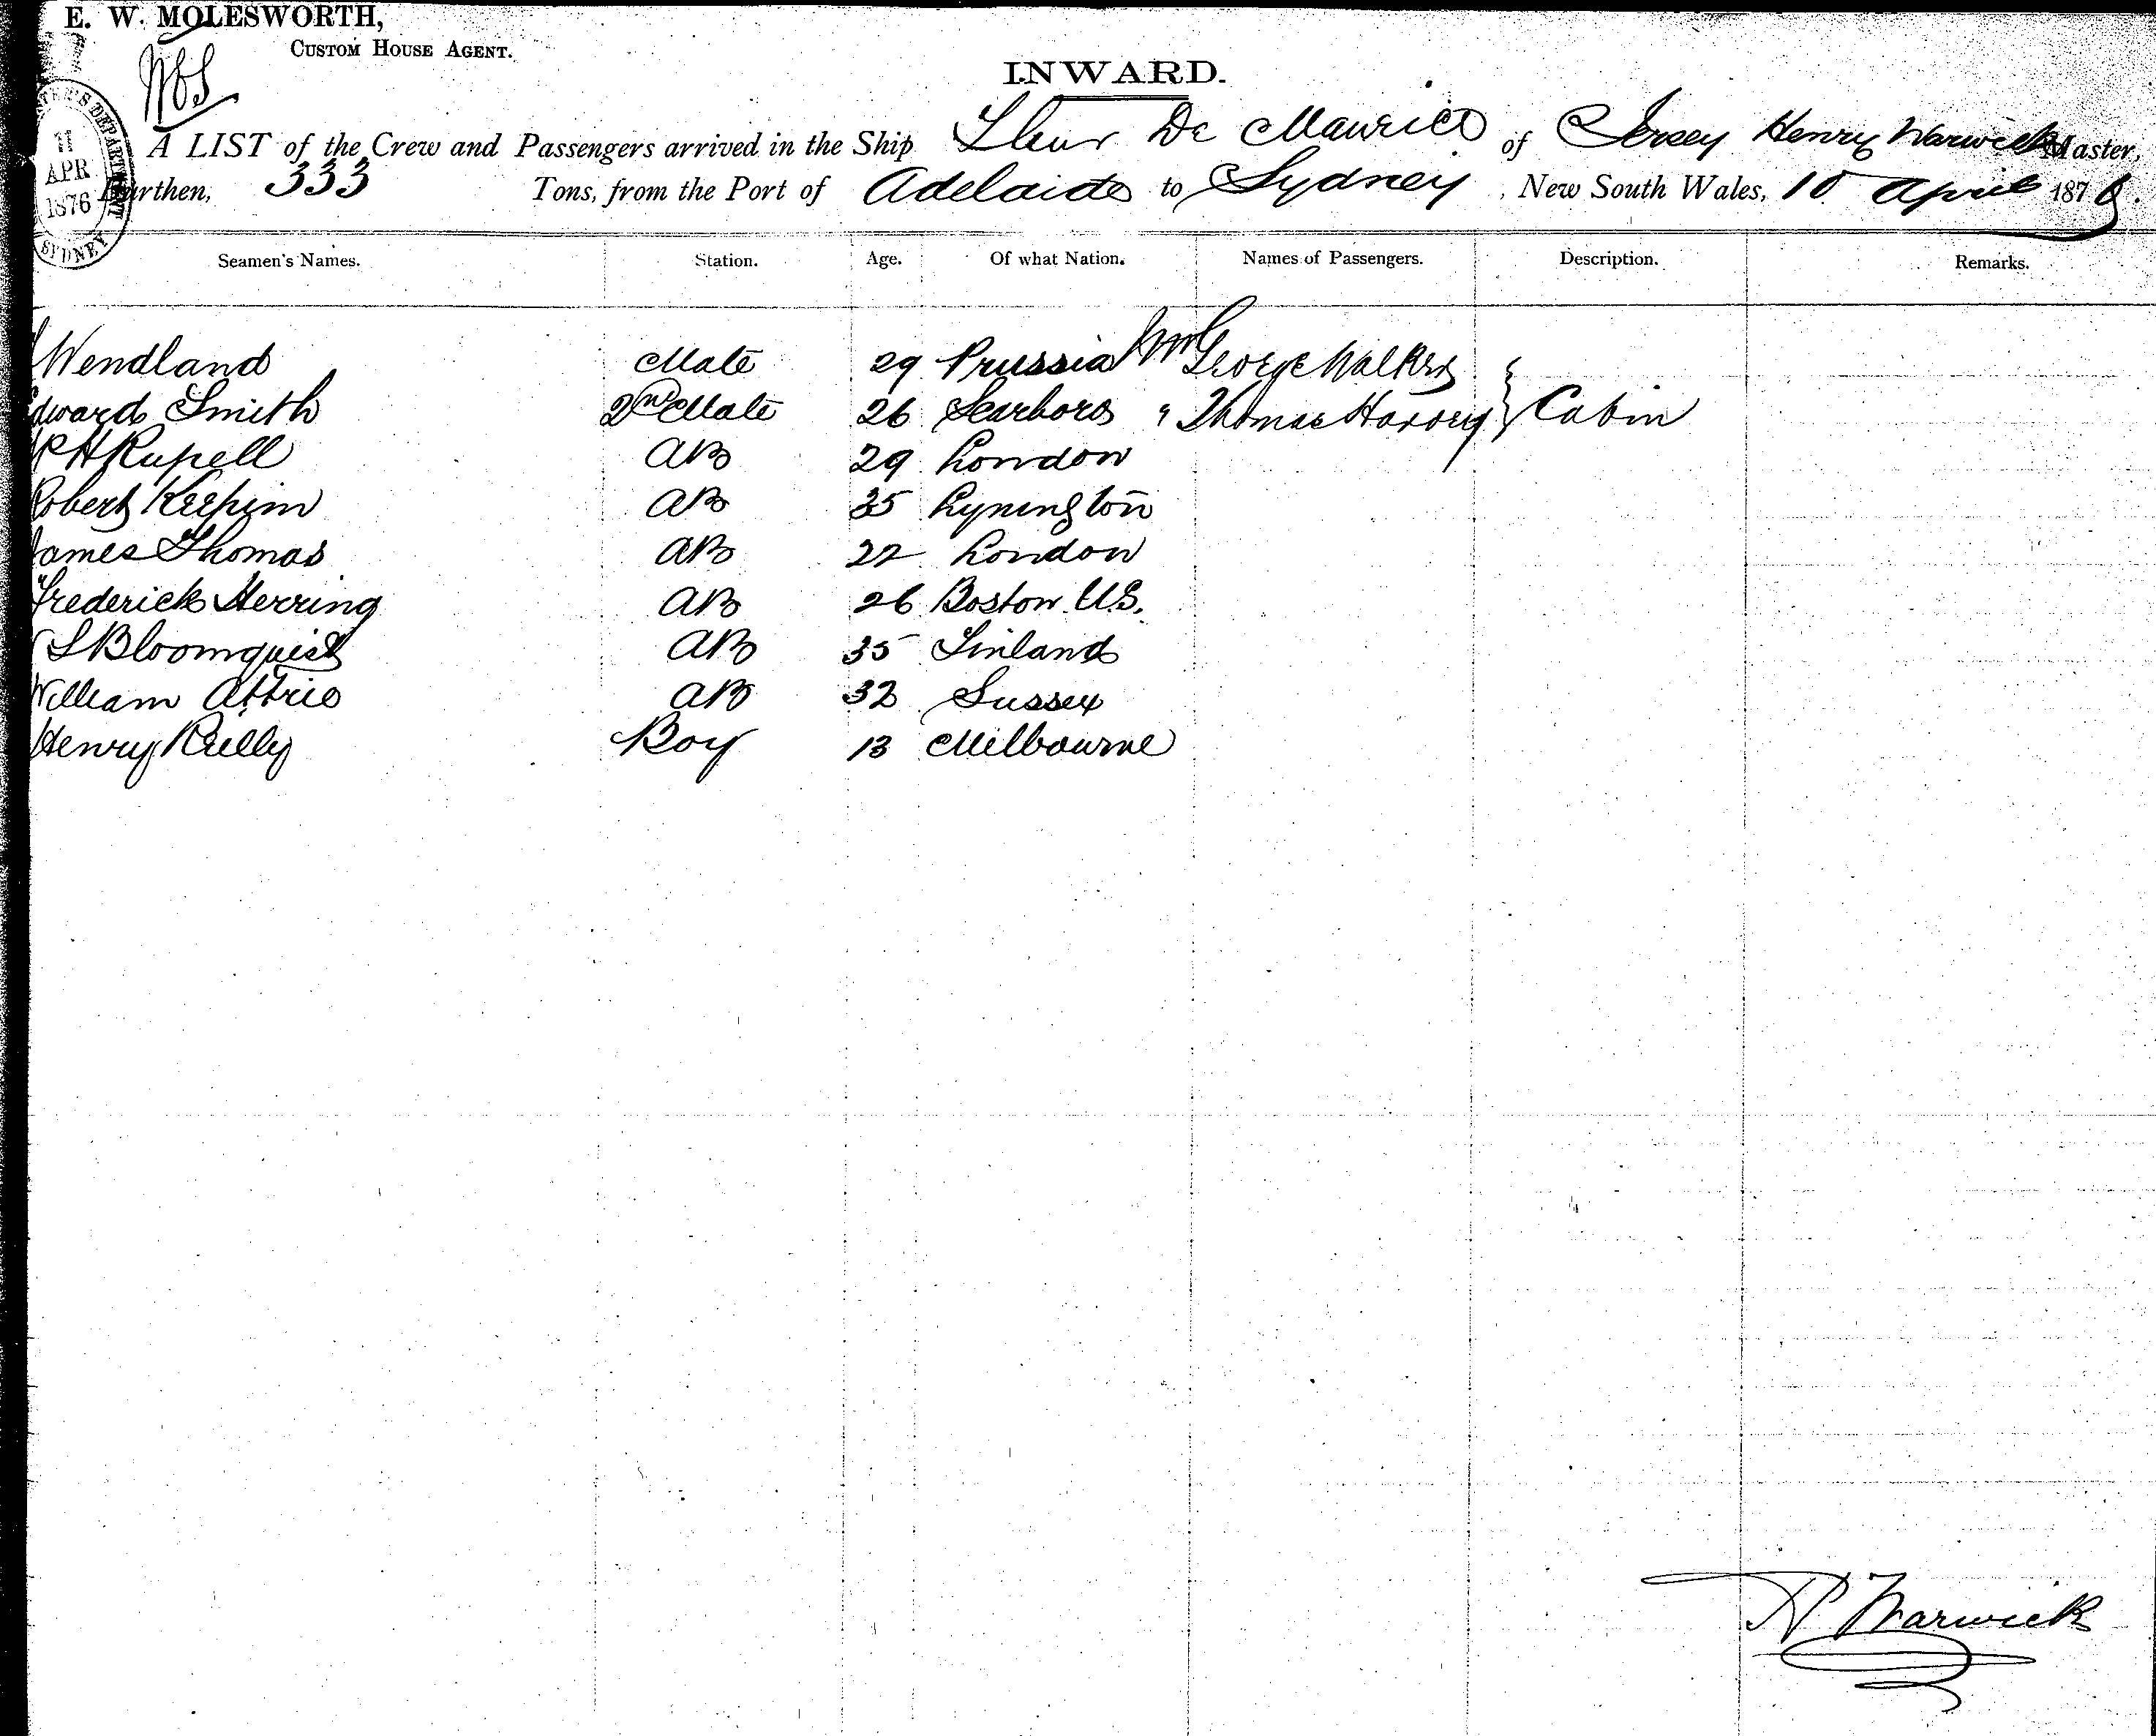 E. W. MOLESWORTH,
CUSTOM HOUSE AGENT.
INWARD.
11
APR
1876
SYDNEY
A LIST of the Crew and Passengers arrived in the Ship Fleur De Maurice of Jersey Henry Warwick Master,
Burthen, 333 Tons, from the Port of Adelaide to Sydney, New South Wales, 10 April 1876.
Seamen's Names. Station. Age. Of what Nation. Names of Passengers. Description. Remarks.
Wendland Mate 29 Prussia Mr George Walker
Edward Smith 2nd Mate 26 Scarboro " Thomas Harvey } Cabin
H Russell AB 29 London
Robert AB 35 Lymington
James Thomas AB 22 London
Frederick Herring AB 26 Boston U.S.
Bloomquist AB 35 Finland
William Attrie AB 32 Sussex
Henry Reilly Boy 13 Melbourne
H Warwick